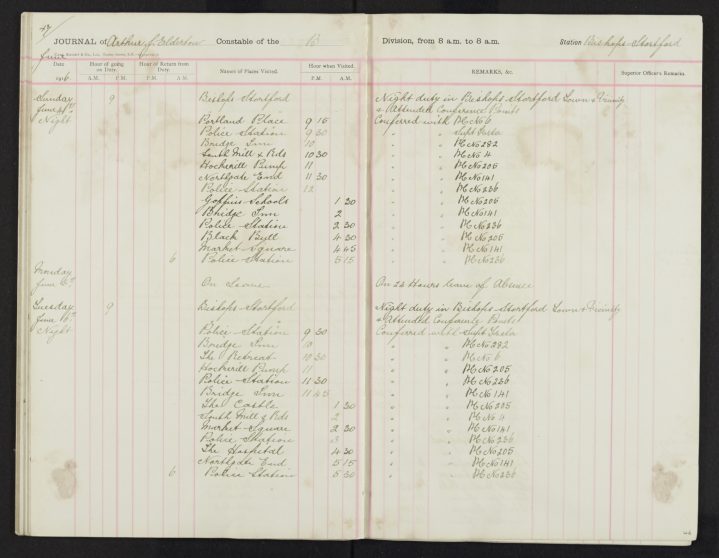 47
JOURNAL of Arthur J. Elderton Constable of the B Division, from 8 a.m. to 8 a.m. Station Bishops-Stortford
June
Date Hour of going on Duty. Hour of Return from Duty. Names of Places Visited. Hour when Visited. REMARKS, &c. Superior Officer's Remarks.
1916 A.M. P.M. P.M. A.M. P.M. A.M.
Sunday 9 Bishops Stortford Night duty in Bishops-Stortford Town & Vicinity
June & Attended Conference Points
Night Portland Place 9 15 Conferred with PC No 6
Police Station 9 30 " " Supt
Bridge Inn 10 " " PC No 282
South Mill & Rds 10 30 " " PC No 4
Hockerill Pump 11 " " PC No 205
Northgate End 11 30 " " PC No 141
Police Station 12 " " PC No 236
Schools 1 30 " " PC No 205
Bridge Inn 2 " " PC No 141
Police Station 2 30 " " PC No 236
Black Bull 4 30 " " PC No 205
Market Square 4 45 " " PC No 141
6 Police Station 5 15 " " PC No 236
Monday
June On Leave On 24 Hours leave of Absence
Tuesday 9 Bishops-Stortford Night duty in Bishops-Stortford Town & Vicinity
June & Attended Conference Points
Night Police Station 9 30 Conferred with Supt
Bridge Inn 10 " " PC No 282
The Retreat 10 30 " " PC No 6
Hockerill Pump 11 " " PC No 205
Police Station 11 30 " " PC No 236
Bridge Inn 11 45 " " PC No 141
The Castle 1 30 " " PC No 205
South Mill & Rds 2 " " PC No 4
Market Square 2 30 " " PC No 141
Police Station 3 " " PC No 236
The Hospital 4 30 " " PC No 205
Northgate End 5 15 " " PC No 141
6 Police Station 5 30 " " PC No 236